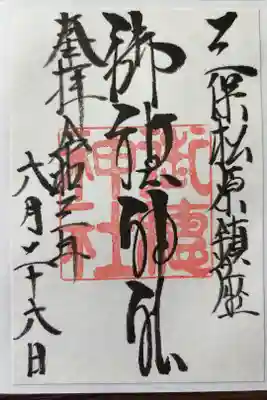 三保松原鎮座
御穂神社
奉拝 令和三年
六月二十六日
御穗
神社